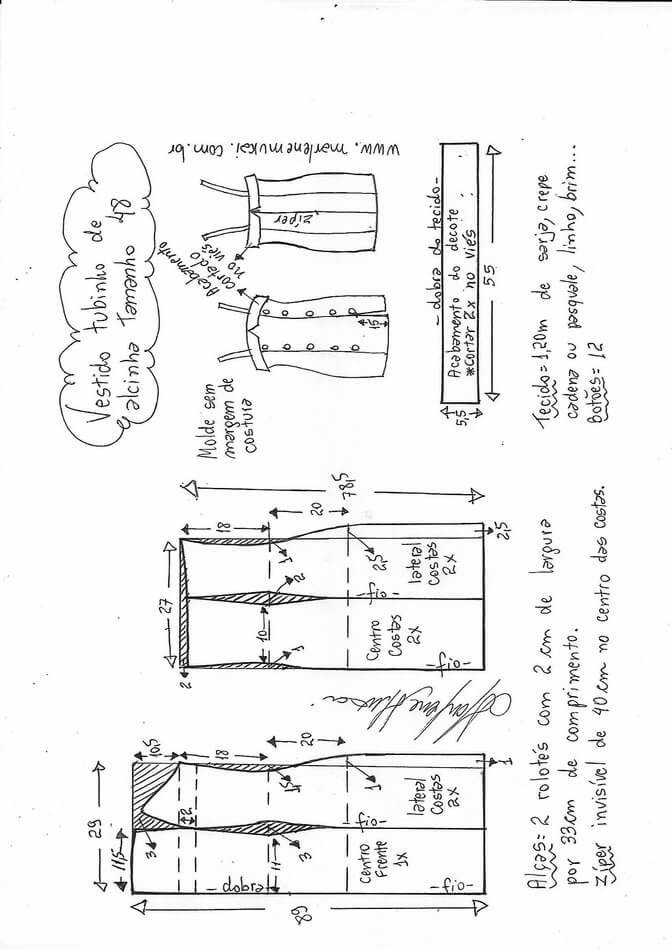 Vestido tubinho de
alcinha Tamanho 48
www.marlenemukai.com.br
zíper
Acabamento
cortado
no viés
15
Molde sem
margem de
costura
- dobra do tecido -
Acabamento do decote
*cortar 2x no viés
55
5,5
Tecido = 1,20m de sarja, crepe
cadena ou pasquale, linho, brim...
Botões = 12
78,5
18
20
27
2
1
2
10
1
2,5
2,5
lateral
costas
2x
-fio-
Centro
Costas
2x
-fio-
10,5
18
20
29
11,5
3
2
1,5
1
1
11
3
lateral
costas
2x
-fio-
Centro
Frente
1x
- dobra
-fio-
89
Alças = 2 rolotés com 2 cm de largura
por 33cm de comprimento.
Zíper invisível de 40cm no centro das costas.